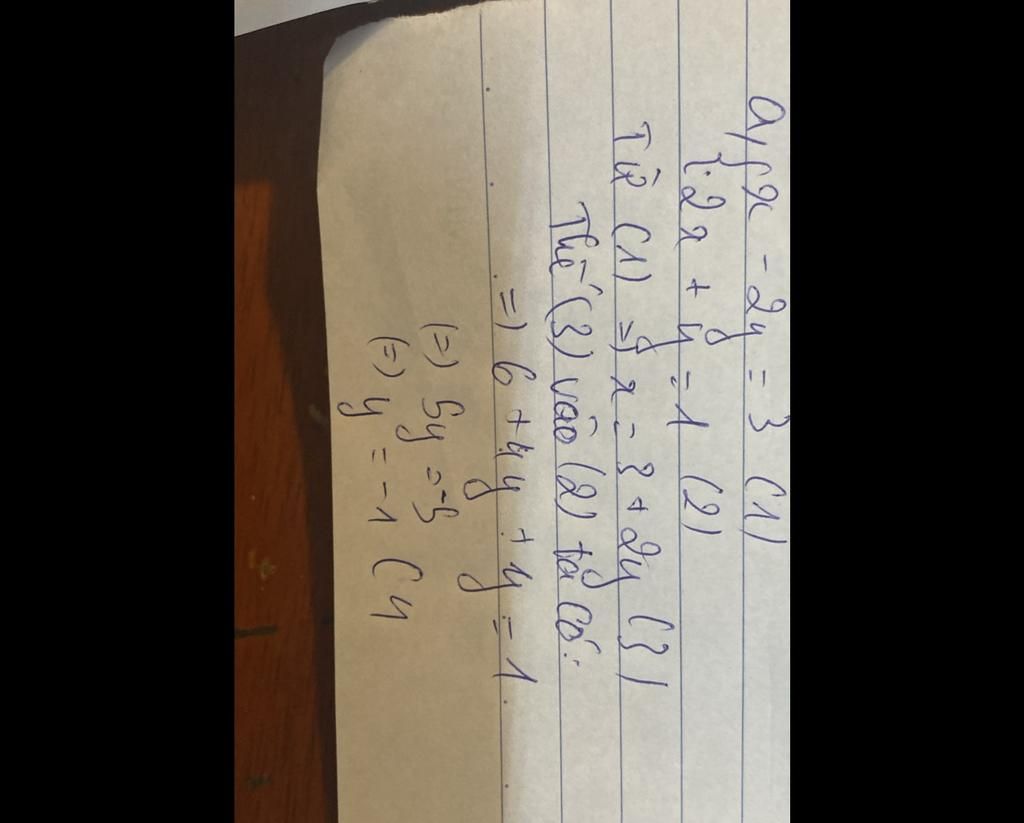 a, { x - 2y = 3 (1)
{ 2x + y = 1 (2)
Từ (1) => x = 3 + 2y (3)
Thế (3) vào (2) ta có:
=> 6 + 4y + y = 1
(=) 5y = -5
(=) y = -1 (4